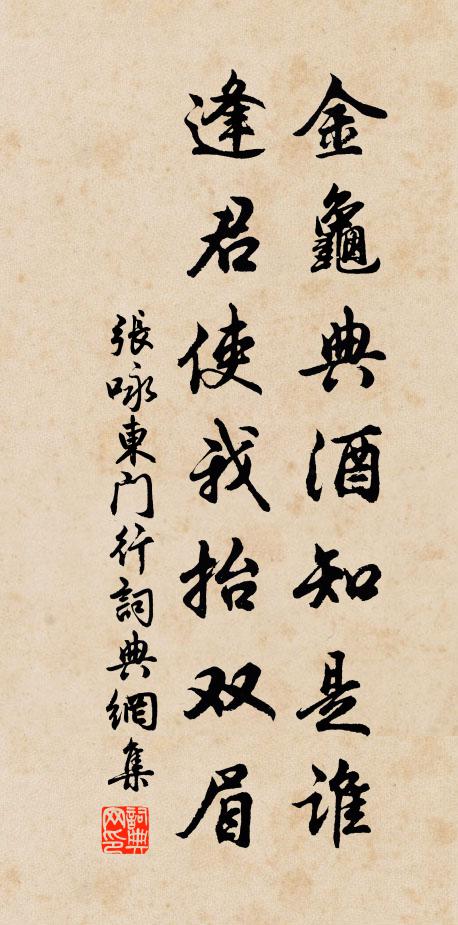 金龜典酒知是谁
逢君使我抬双眉
張咏東門行詞典網集
詞典網印